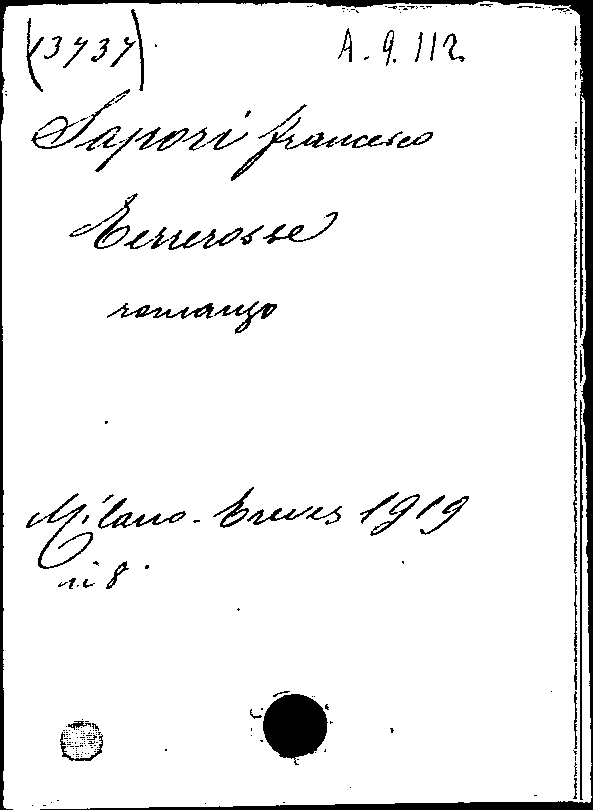 (13737) A. 9. 112.
Sapori Francesco
Terrerosse
romanzo
Milano - Treves 1919
in 8.